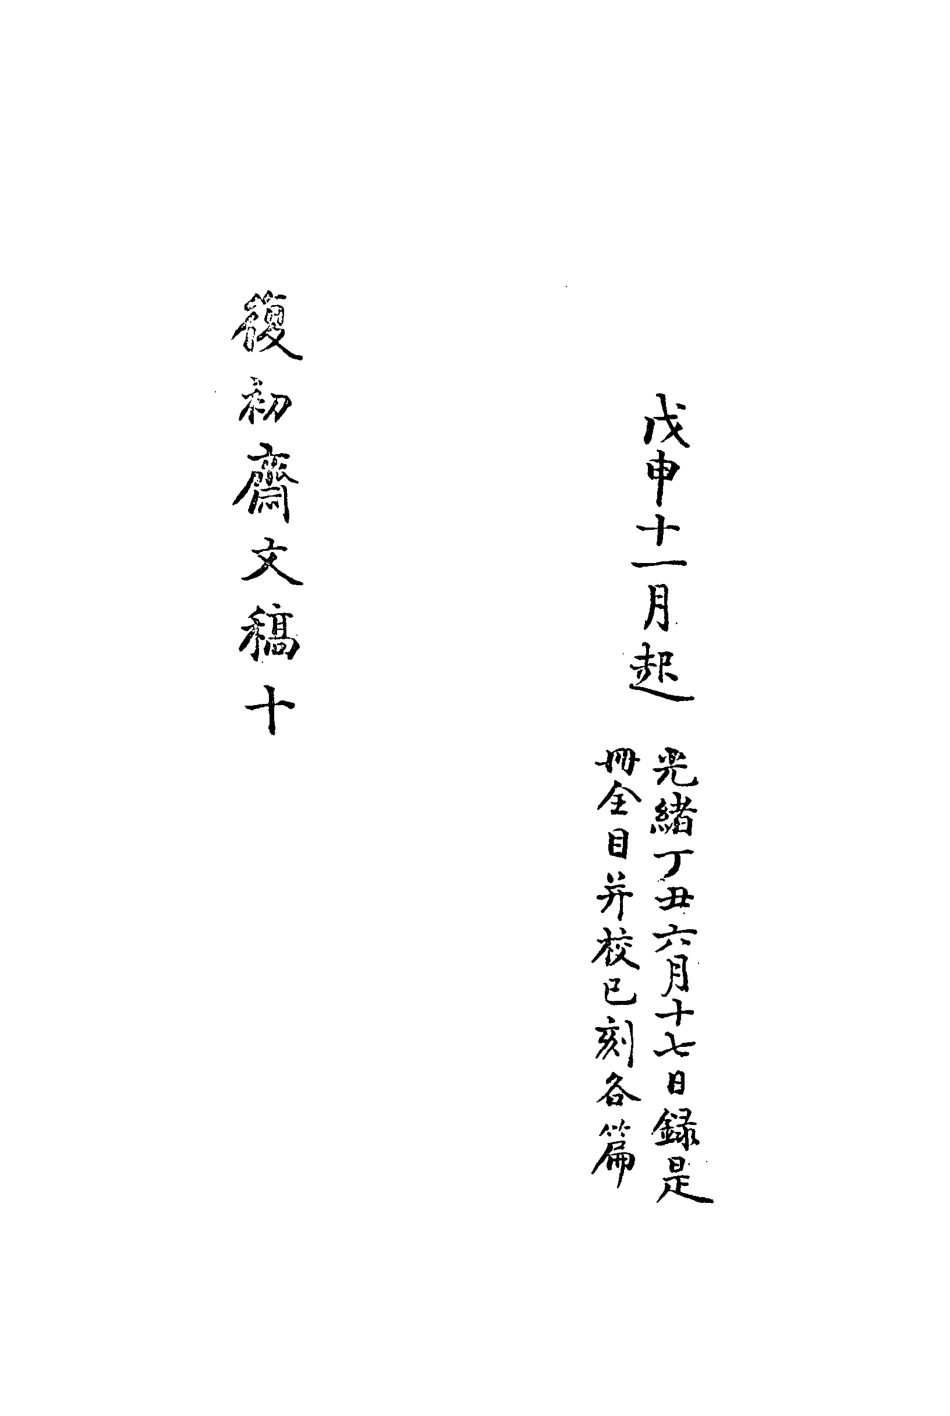 戊申十一月起
光緒丁丑六月十七日録是
冊全目并校已刻各篇
復初齋文稿十